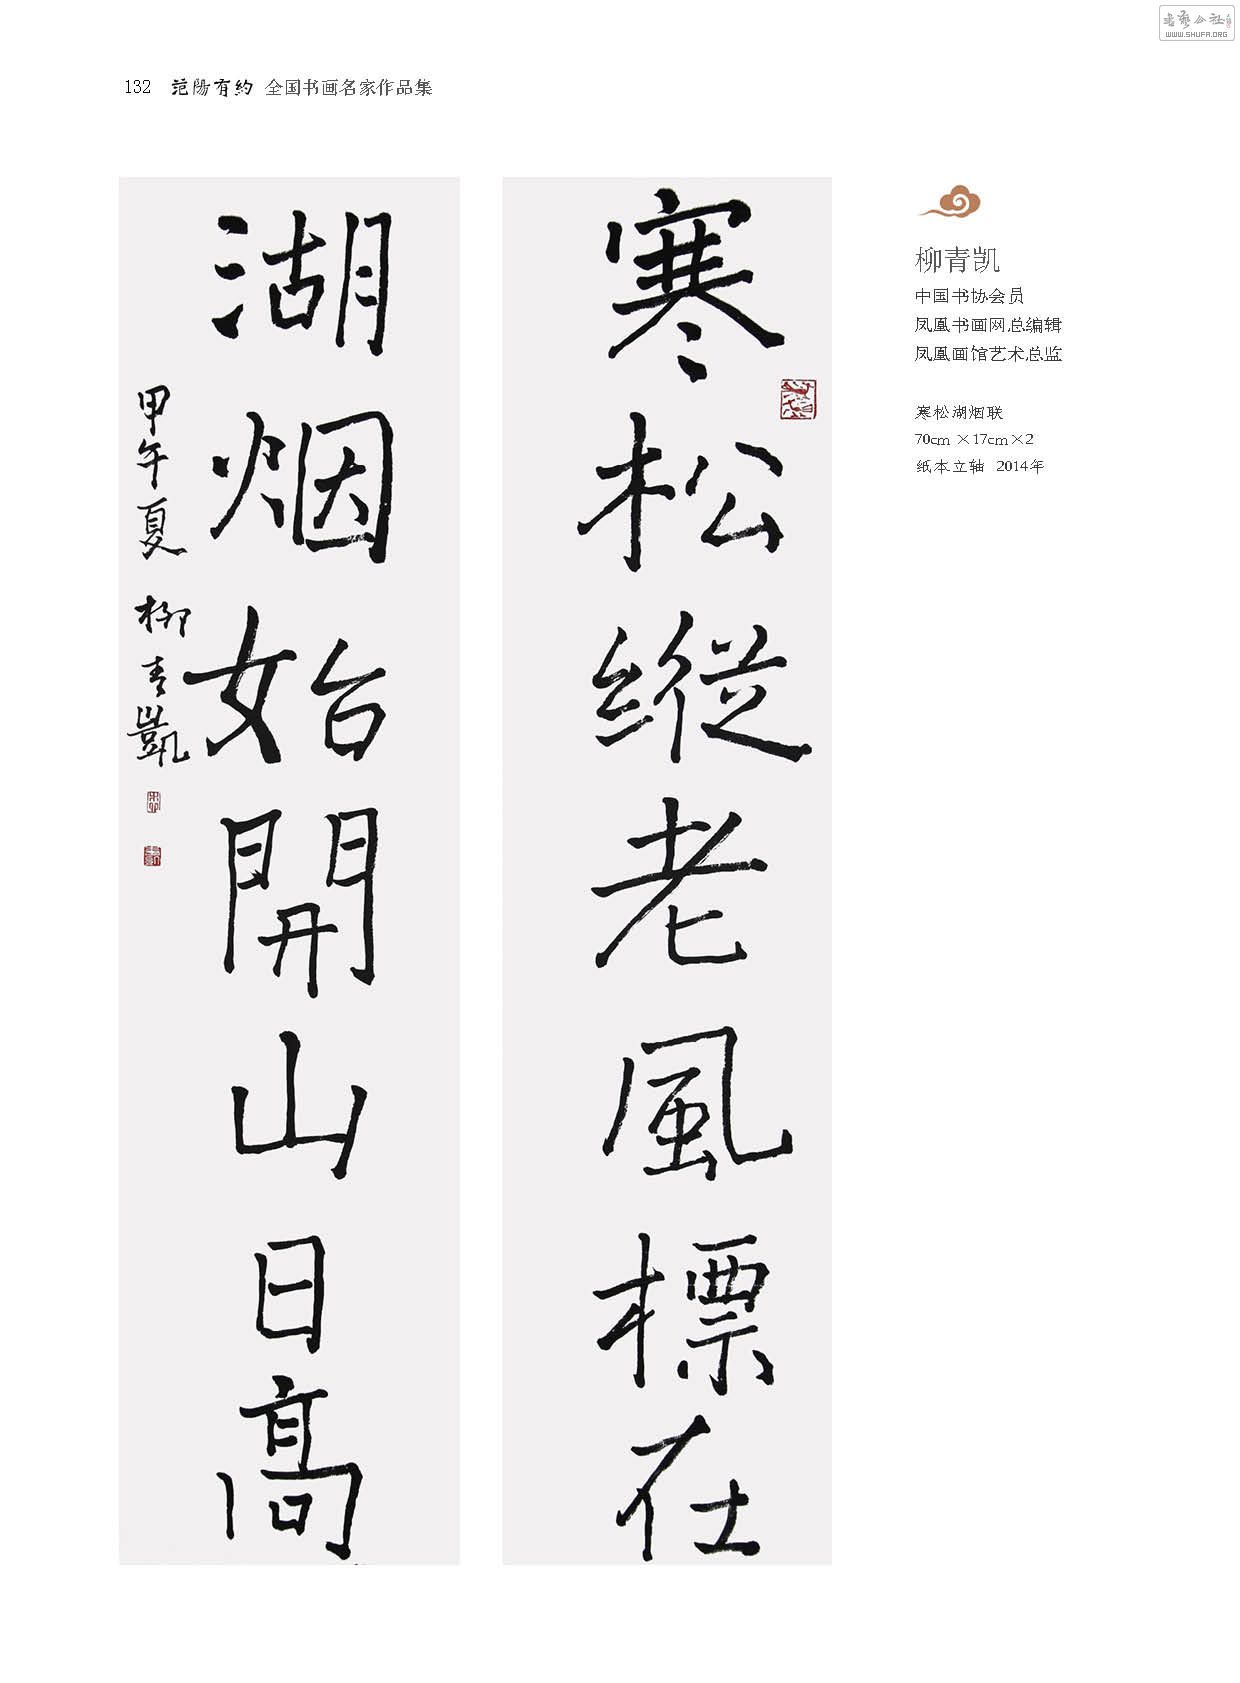 书艺公社
WWW.SHUFA.ORG
132 范陽有約 全国书画名家作品集
寒松縱老風標在
湖烟始開山日高
甲午夏 柳青凱
柳青凯
中国书协会员
凤凰书画网总编辑
凤凰画馆艺术总监
寒松湖烟联
70cm ×17cm×2
纸本立轴 2014年